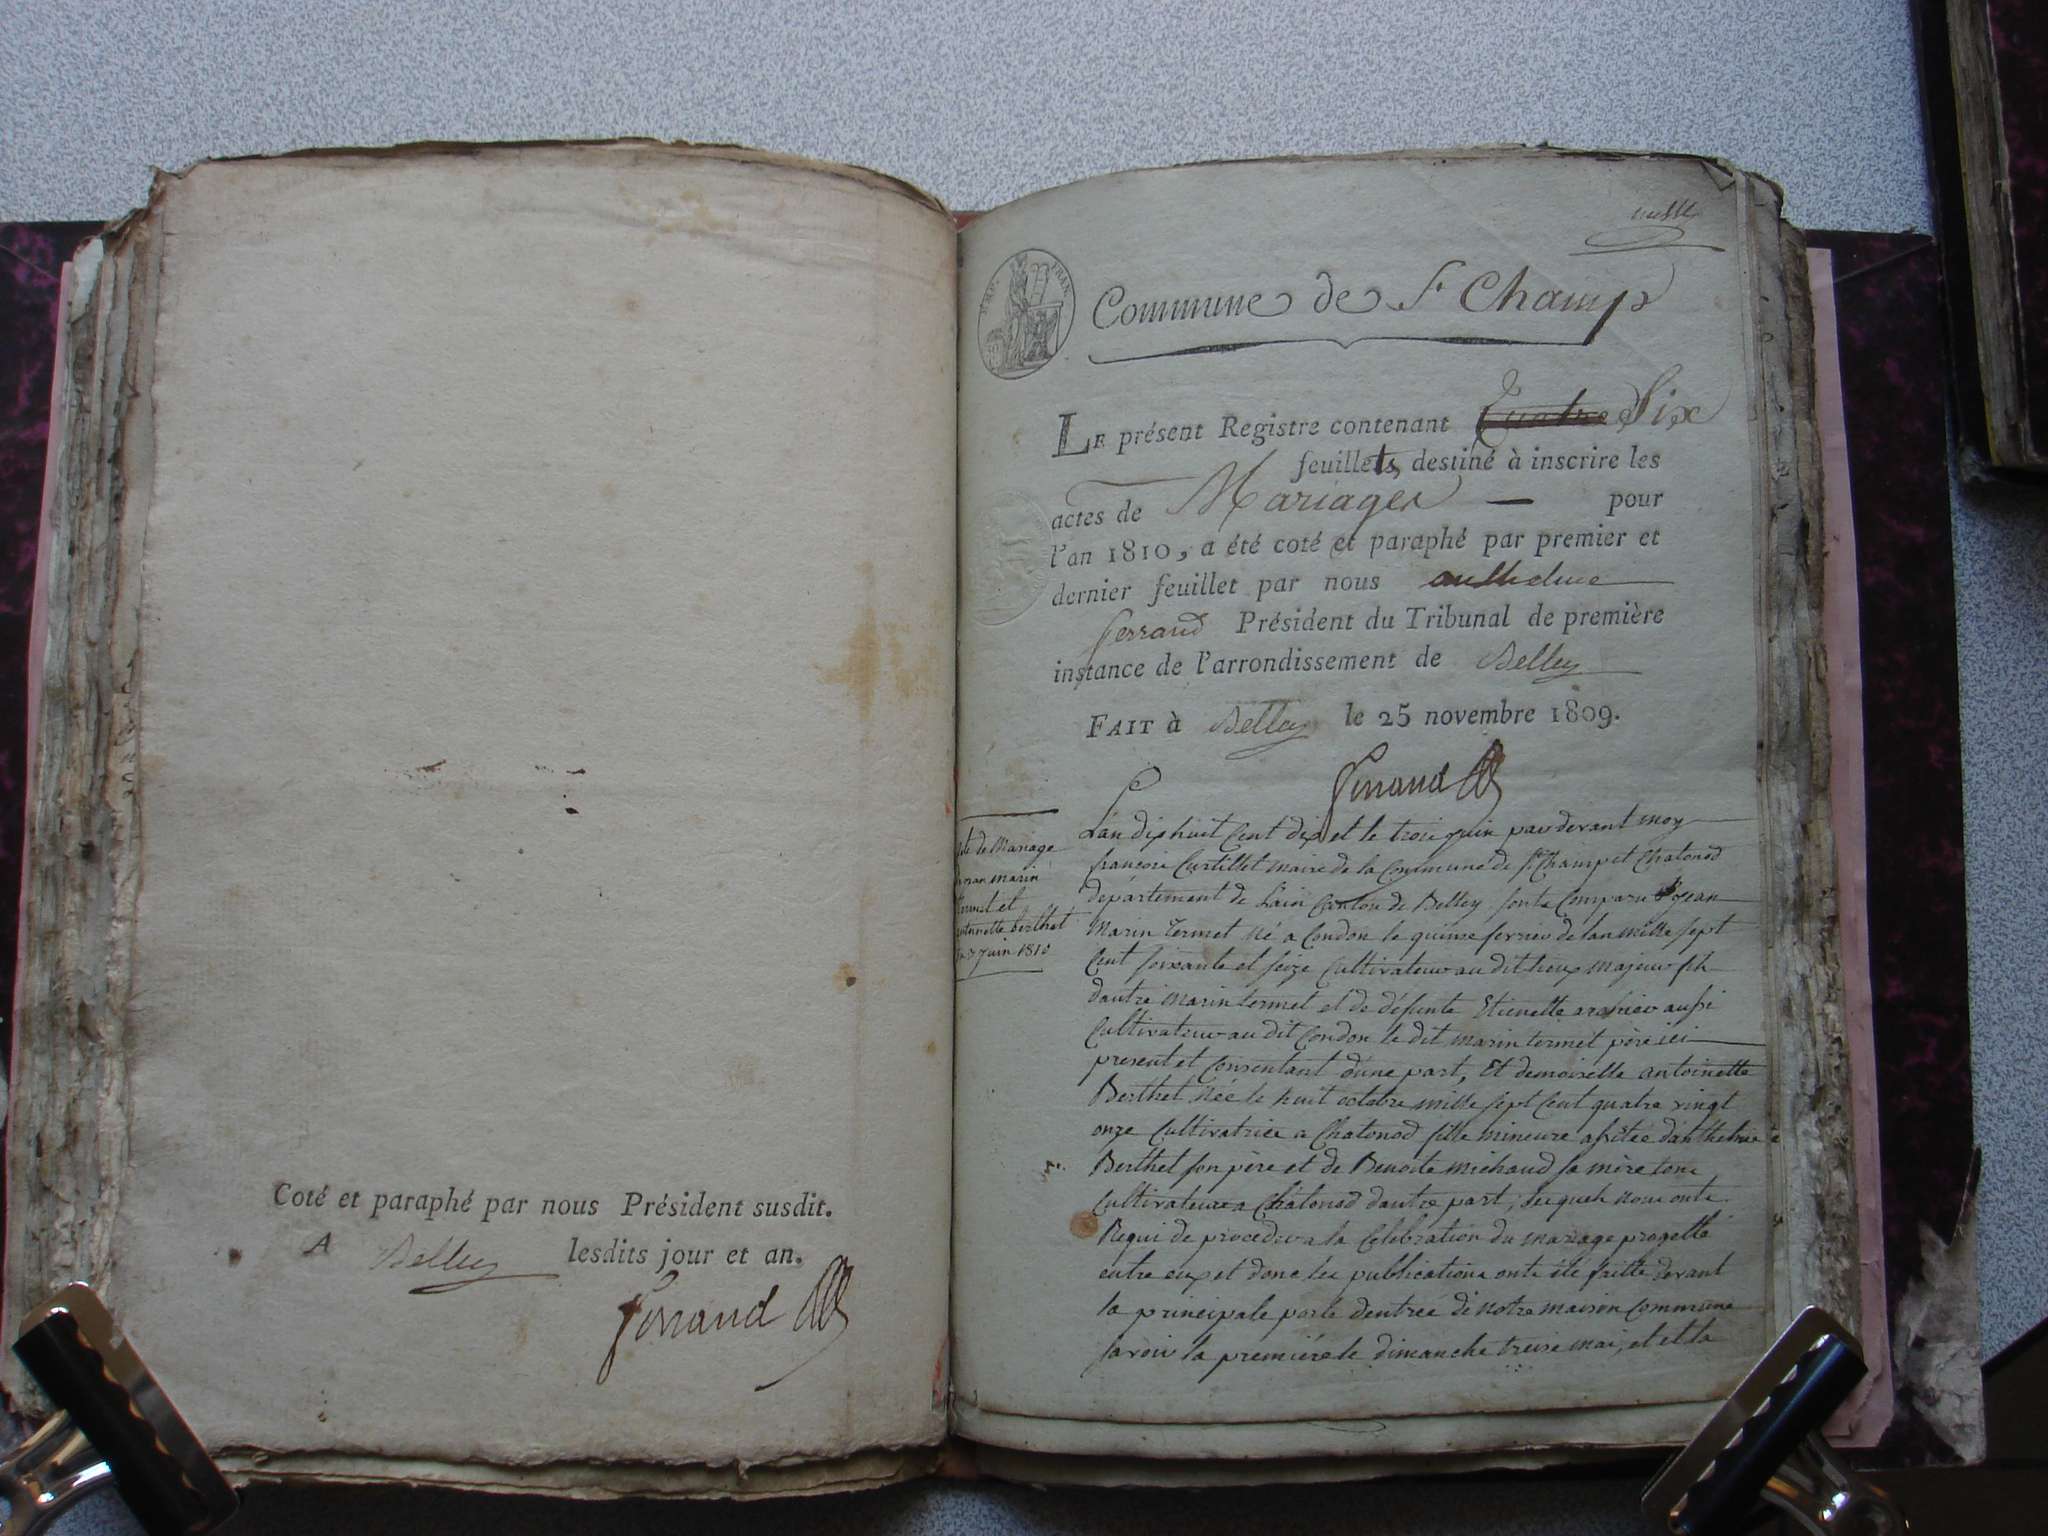 Coté et paraphé par nous Président susdit.
A Belley lesdits jour et an.
Ferrand
IMP. FRAN.
Commune de St Champ
LE présent Registre contenant Quatre Six
feuillets, destiné à inscrire les
actes de Mariages — pour
l'an 1810, a été coté et paraphé par premier et
dernier feuillet par nous anthelme
ferrand Président du Tribunal de première
instance de l'arrondissement de Belley
FAIT à Belley le 25 novembre 1809.
Ferrand
de Mariage
marin
termet et
antoinette berthet
juin 1810
L'an dix huit Cent dix et le trois juin par devant moy
françois Curtillet maire de la Commune de St Champ et Chatonod
département de Lain Canton de Belley sonts Comparu jean
Marin termet Né a Condon le quinse fevrier de lan mille sept
Cent soixante et seize Cultivateur au dit lieux majeur fils
dautre marin termet et de défunte Etienette aussi
Cultivateur au dit Condon le dit marin termet père ici
present et Consentant dune part, Et demoiselle antoinette
Berthet Née le huit octobre mille sept Cent quatre vingt
onze Cultivatrice a Chatonod fille mineure assitée danthelme
Berthet son père et de Benoite michaud sa mère tous
Cultivateurs a Chatonod dautre part; lesquels nous onts
Requi de proceder a la Celebration du mariage progetté
entre eux et donc les publications onts été faitte devant
la principale porte dentrée de notre maison Commune
savoir la premiére le dimanche treise mai, et et la